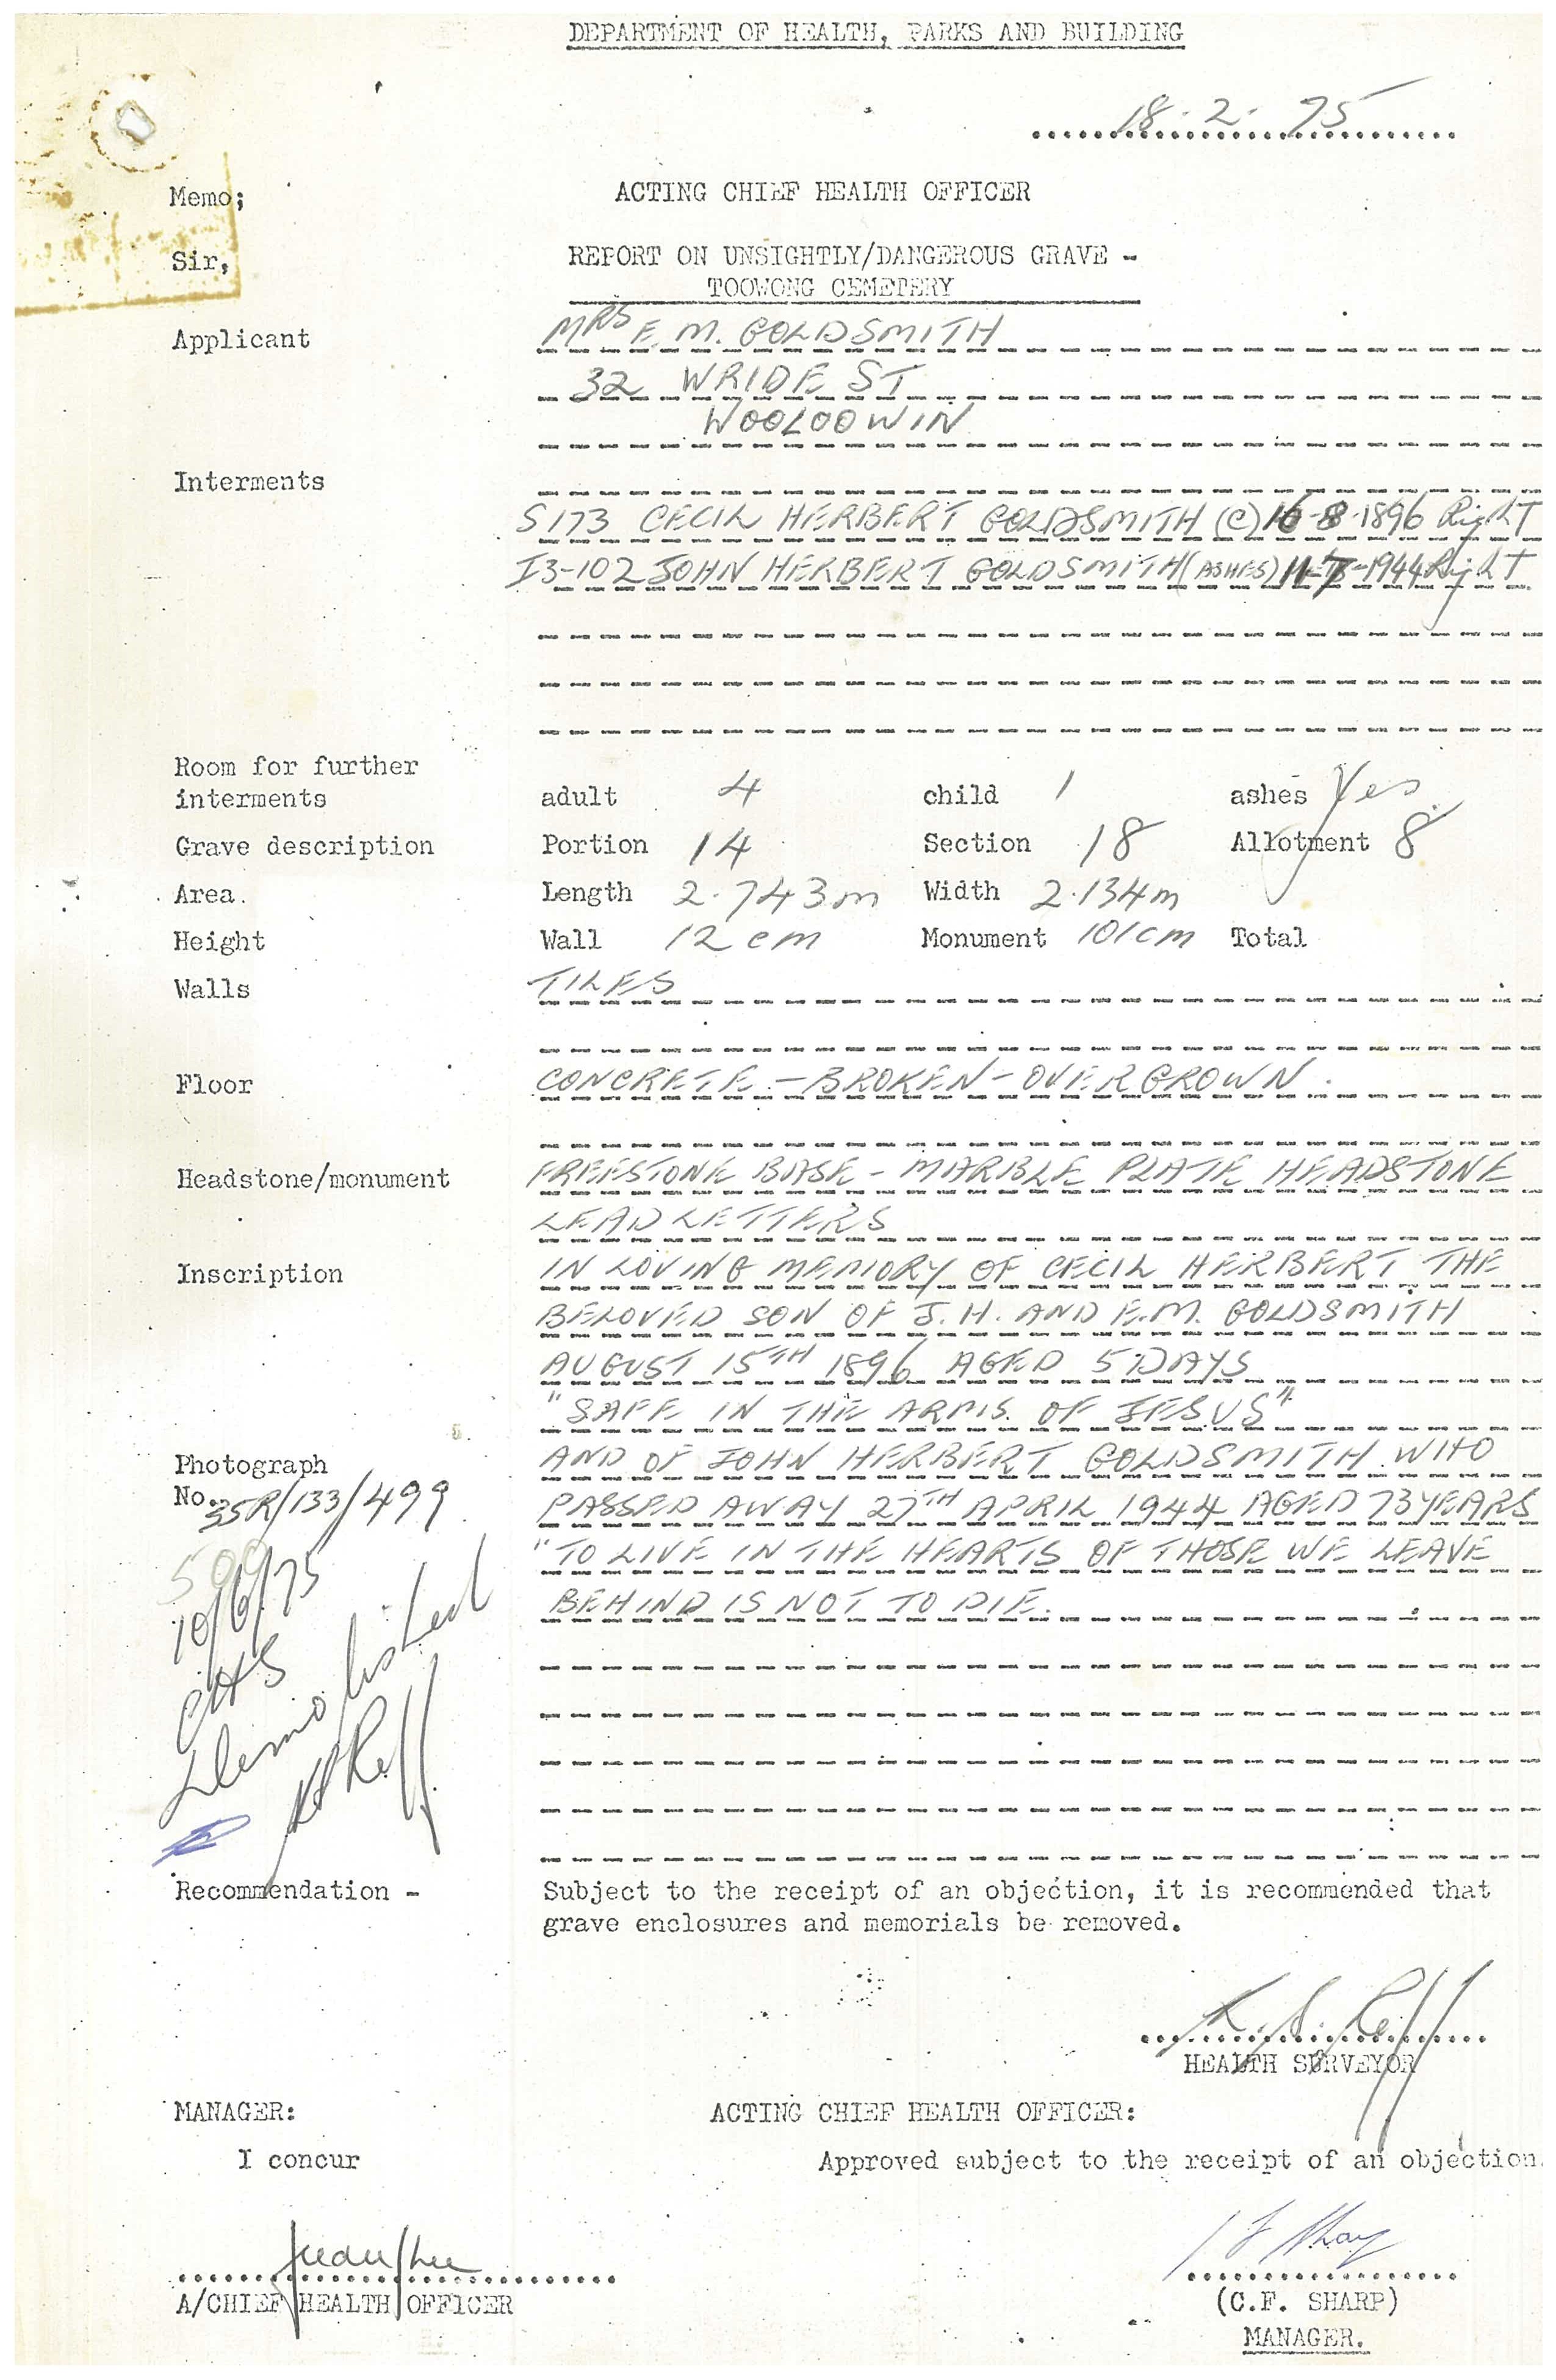 DEPARTMENT OF HEALTH, PARKS AND BUILDING
18-2-75
Memo; ACTING CHIEF HEALTH OFFICER
Sir, REPORT ON UNSIGHTLY/DANGEROUS GRAVE -
TOOWONG CEMETERY
Applicant MRS E. M. GOLDSMITH
32 WRIDE ST
WOOLOOWIN
Interments
S173 CECIL HERBERT GOLDSMITH (C) 16-8-1896 Right
I3-102 JOHN HERBERT GOLDSMITH (ASHES) 11-7-1944 Right
Room for further
interments adult 4 child 1 ashes Yes
Grave description Portion 14 Section 18 Allotment 8
Area. Length 2.743m Width 2.134m
Height Wall 12cm Monument 101cm Total
Walls TILES
Floor CONCRETE - BROKEN - OVERGROWN.
Headstone/monument FREESTONE BASE - MARBLE PLATE HEADSTONE
LEAD LETTERS
Inscription IN LOVING MEMORY OF CECIL HERBERT THE
BELOVED SON OF J. H. AND E. M. GOLDSMITH
AUGUST 15TH 1896 AGED 5 DAYS
"SAFE IN THE ARMS OF JESUS"
Photograph AND OF JOHN HERBERT GOLDSMITH WHO
No. 35R/133/499 PASSED AWAY 27TH APRIL 1944 AGED 73 YEARS
500 "TO LIVE IN THE HEARTS OF THOSE WE LEAVE
10/6/75 BEHIND IS NOT TO DIE.
CHS
Demolished
Recommendation - Subject to the receipt of an objection, it is recommended that
grave enclosures and memorials be removed.
K. S. Reiff
HEALTH SURVEYOR
MANAGER: ACTING CHIEF HEALTH OFFICER:
I concur Approved subject to the receipt of an objection.
A/CHIEF HEALTH OFFICER (C.F. SHARP)
MANAGER.